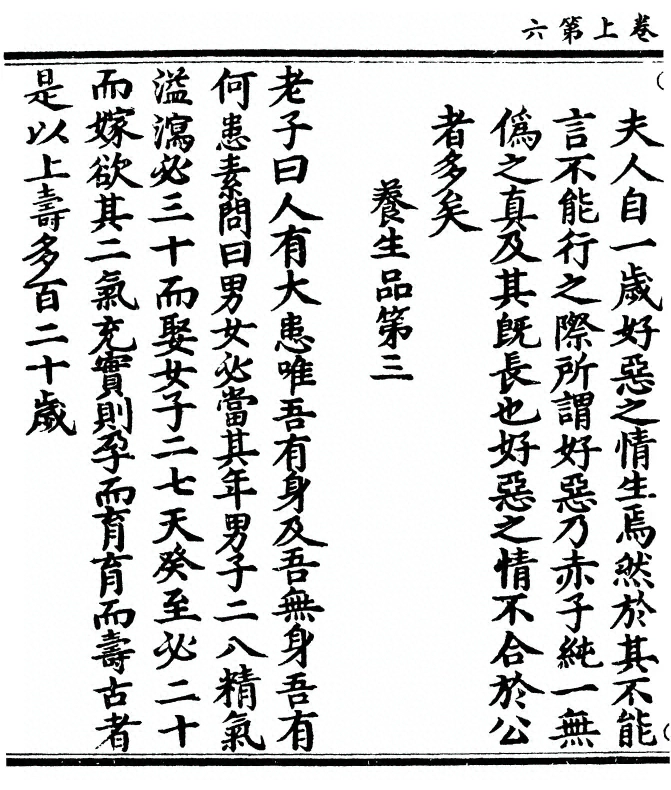 卷上第六
夫人自一歲好惡之情生焉然於其不能
言不能行之際所謂好惡乃赤子純一無
僞之真及其既長也好惡之情不合於公
者多矣
養生品第三
老子曰人有大患唯吾有身及吾無身吾有
何患素問曰男女必當其年男子二八精氣
溢瀉必三十而娶女子二七天癸至必二十
而嫁欲其二氣充實則孕而育育而壽古者
是以上壽多百二十歲